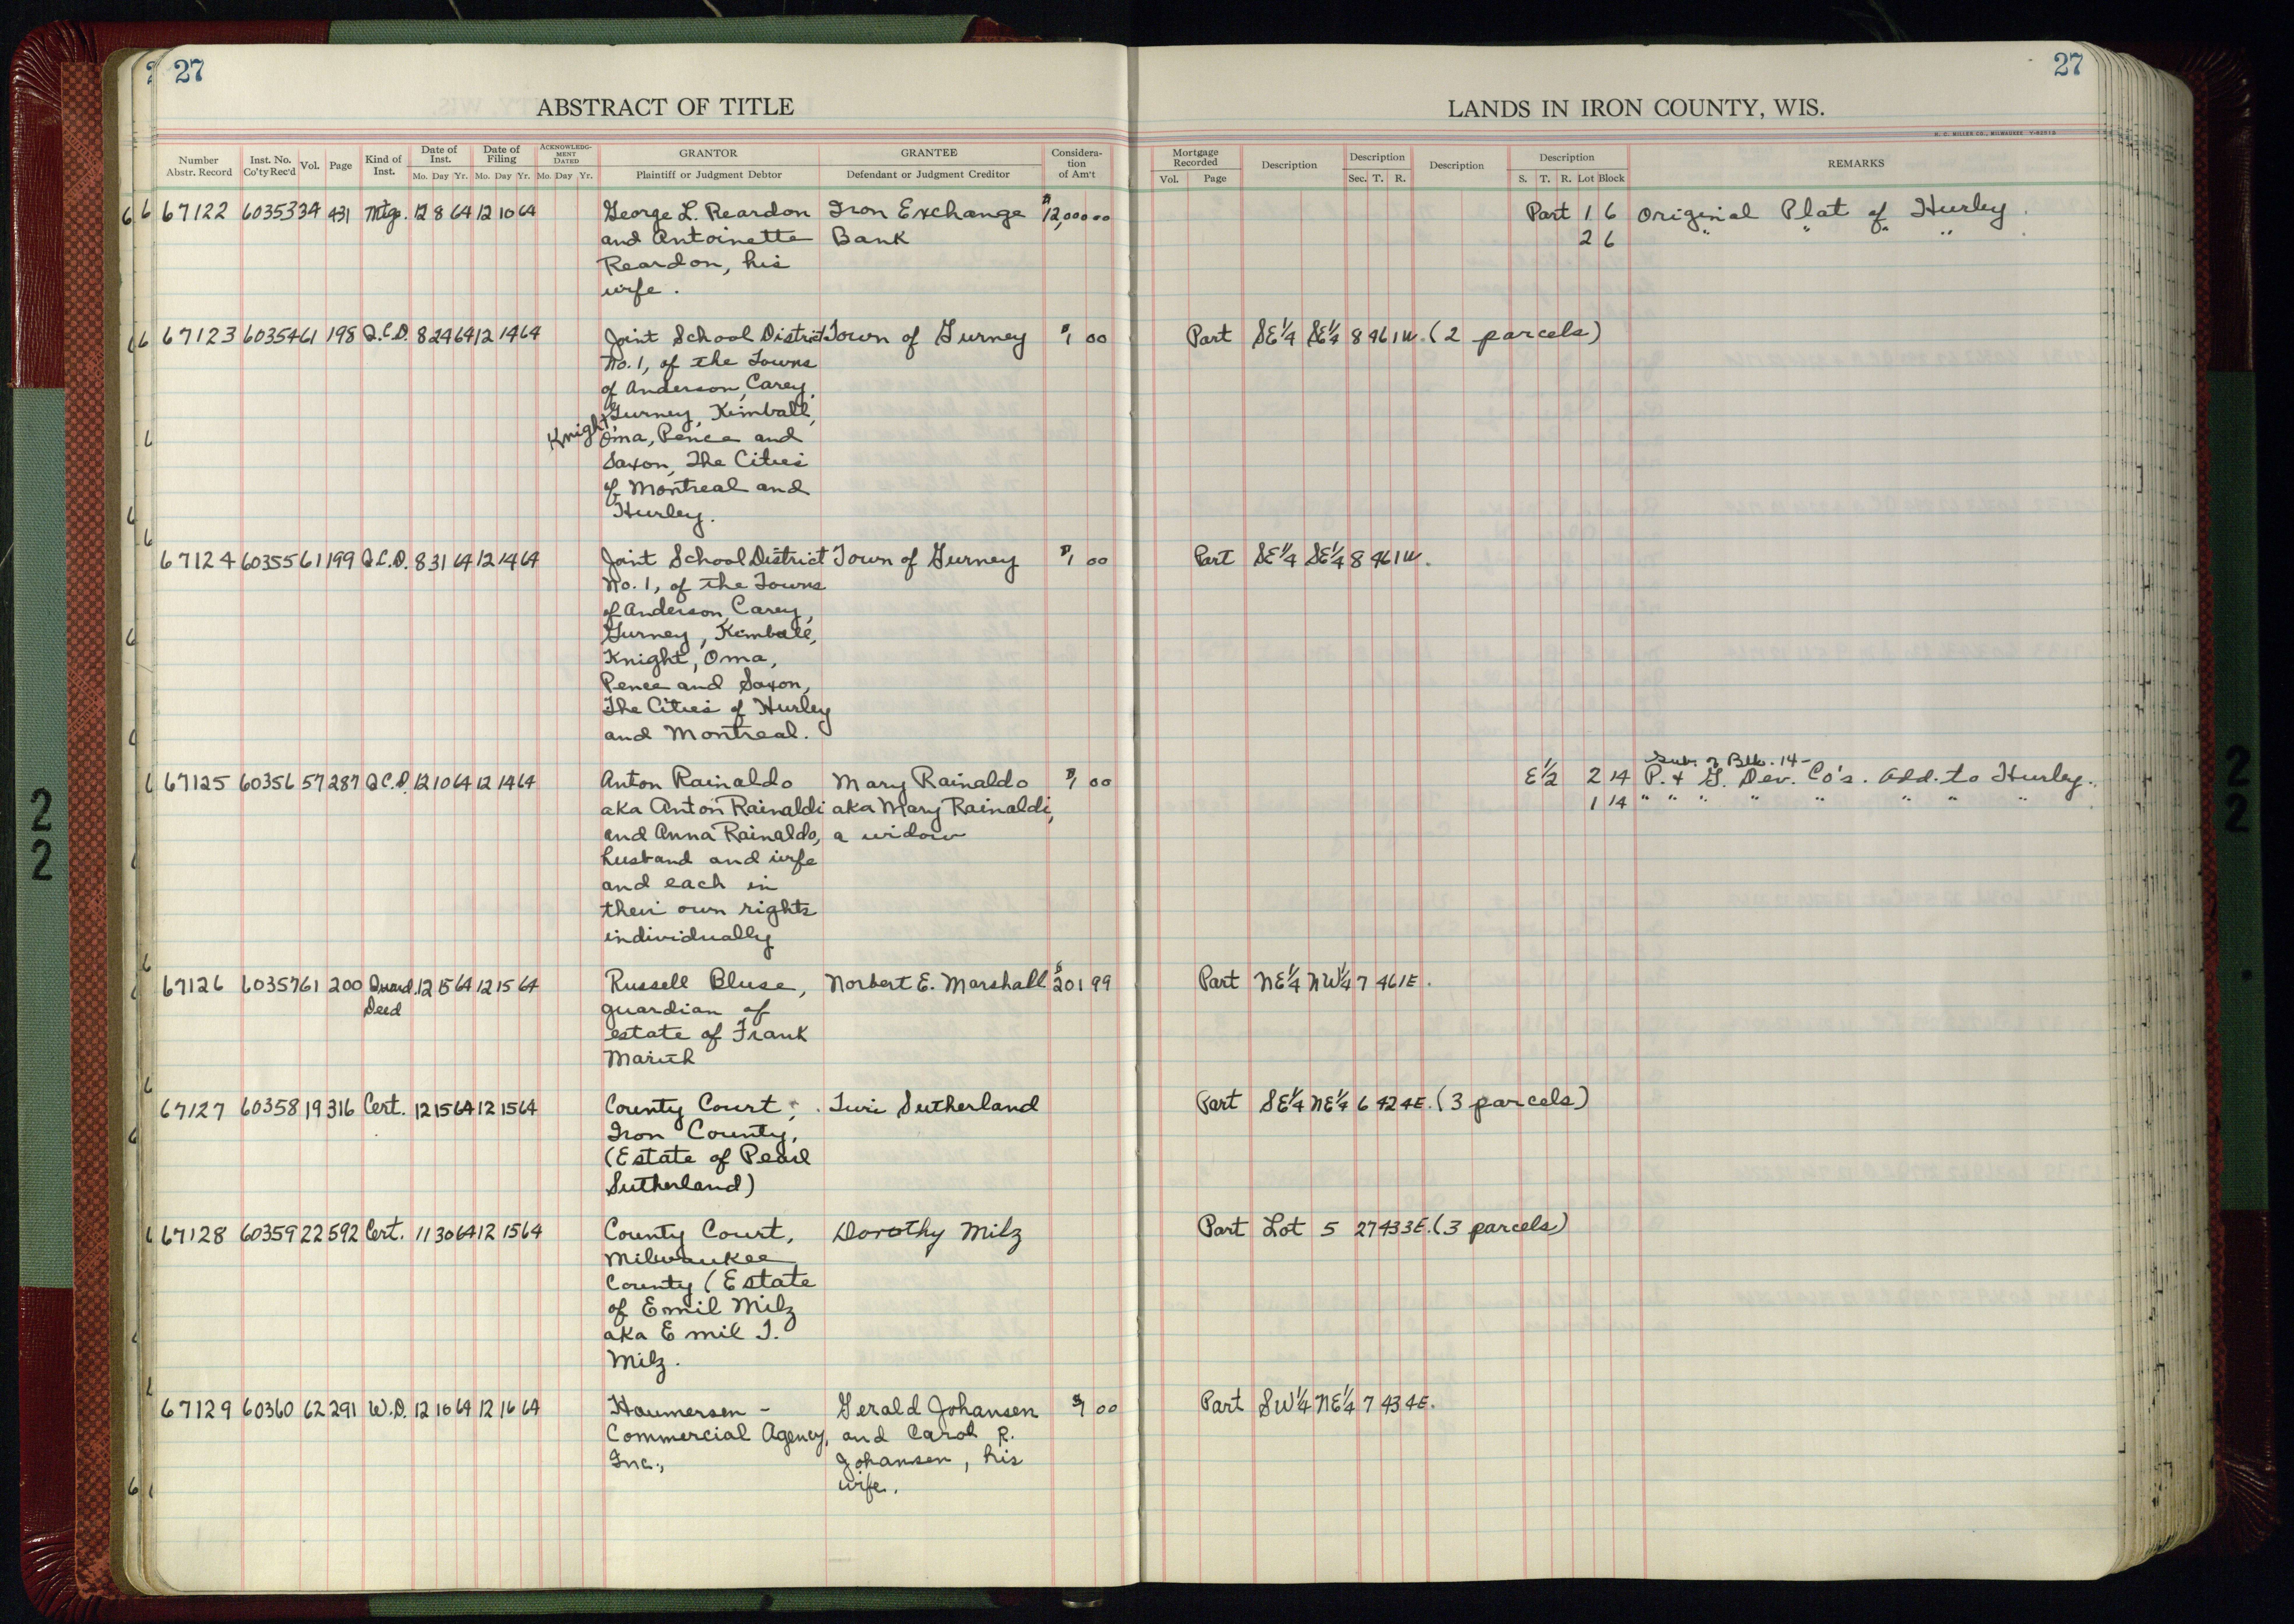 27
27
ABSTRACT OF TITLE
LANDS IN IRON COUNTY, WIS.
H. C. MILLER CO., MILWAUKEE
Number Abstr. Record | Inst. No. Co'ty Rec'd | Vol. | Page | Kind of Inst. | Date of Inst. Mo. Day Yr. | Date of Filing Mo. Day Yr. | ACKNOWLEDGMENT DATED Mo. Day Yr. | GRANTOR Plaintiff or Judgment Debtor | GRANTEE Defendant or Judgment Creditor | Consideration of Am't
Mortgage Recorded Vol. Page | Description | Description Sec. T. R. | Description | Description S. T. R. Lot Block | REMARKS
67122 60353 34 431 Mtge. 12 8 64 12 10 64 George L. Reardon Iron Exchange $12,000 00 Part 1 6 Original Plat of Hurley.
and Antoinette Bank 2 6 " " " "
Reardon, his
wife.
67123 60354 61 198 Q.C.D. 8 24 64 12 14 64 Joint School District Town of Gurney $1 00 Part SE¼ SE¼ 8 46 1W. (2 parcels)
No. 1, of the Towns
of Anderson, Carey,
Gurney, Kimball,
Knight, Oma, Pence and
Saxon, The Cities
of Montreal and
Hurley.
67124 60355 61 199 Q.C.D. 8 31 64 12 14 64 Joint School District Town of Gurney $1 00 Part SE¼ SE¼ 8 46 1W.
No. 1, of the Towns
of Anderson, Carey,
Gurney, Kimball,
Knight, Oma,
Pence and Saxon,
The Cities of Hurley
and Montreal.
Sub. of Blk. 14-
67125 60356 57 287 Q.C.D. 12 10 64 12 14 64 Anton Rainaldo Mary Rainaldo $1 00 E½ 2 14 P. & G. Dev. Co's. Add. to Hurley.
aka Anton Rainaldi aka Mary Rainaldi, 1 14 " " " " " " " "
and Anna Rainaldo, a widow
husband and wife
and each in
their own rights
individually
67126 60357 61 200 Guard. 12 15 64 12 15 64 Russell Bluse, Norbert E. Marshall $201 99 Part NE¼ NW¼ 7 46 1E.
Deed guardian of
estate of Frank
67127 60358 19 316 Cert. 12 15 64 12 15 64 County Court, Sutherland Part SE¼ NE¼ 6 42 4E. (3 parcels)
Iron County,
(Estate of Pearl
Sutherland)
67128 60359 22 592 Cert. 11 30 64 12 15 64 County Court, Dorothy Milz Part Lot 5 27 43 3E. (3 parcels)
Milwaukee
County (Estate
of Emil Milz
aka Emil J.
Milz.
67129 60360 62 291 W.D. 12 10 64 12 16 64 Haumersen - Gerald Johansen $1 00 Part SW¼ NE¼ 7 43 4E.
Commercial Agency, and Carol R.
Inc., Johansen, his
wife.
22
22